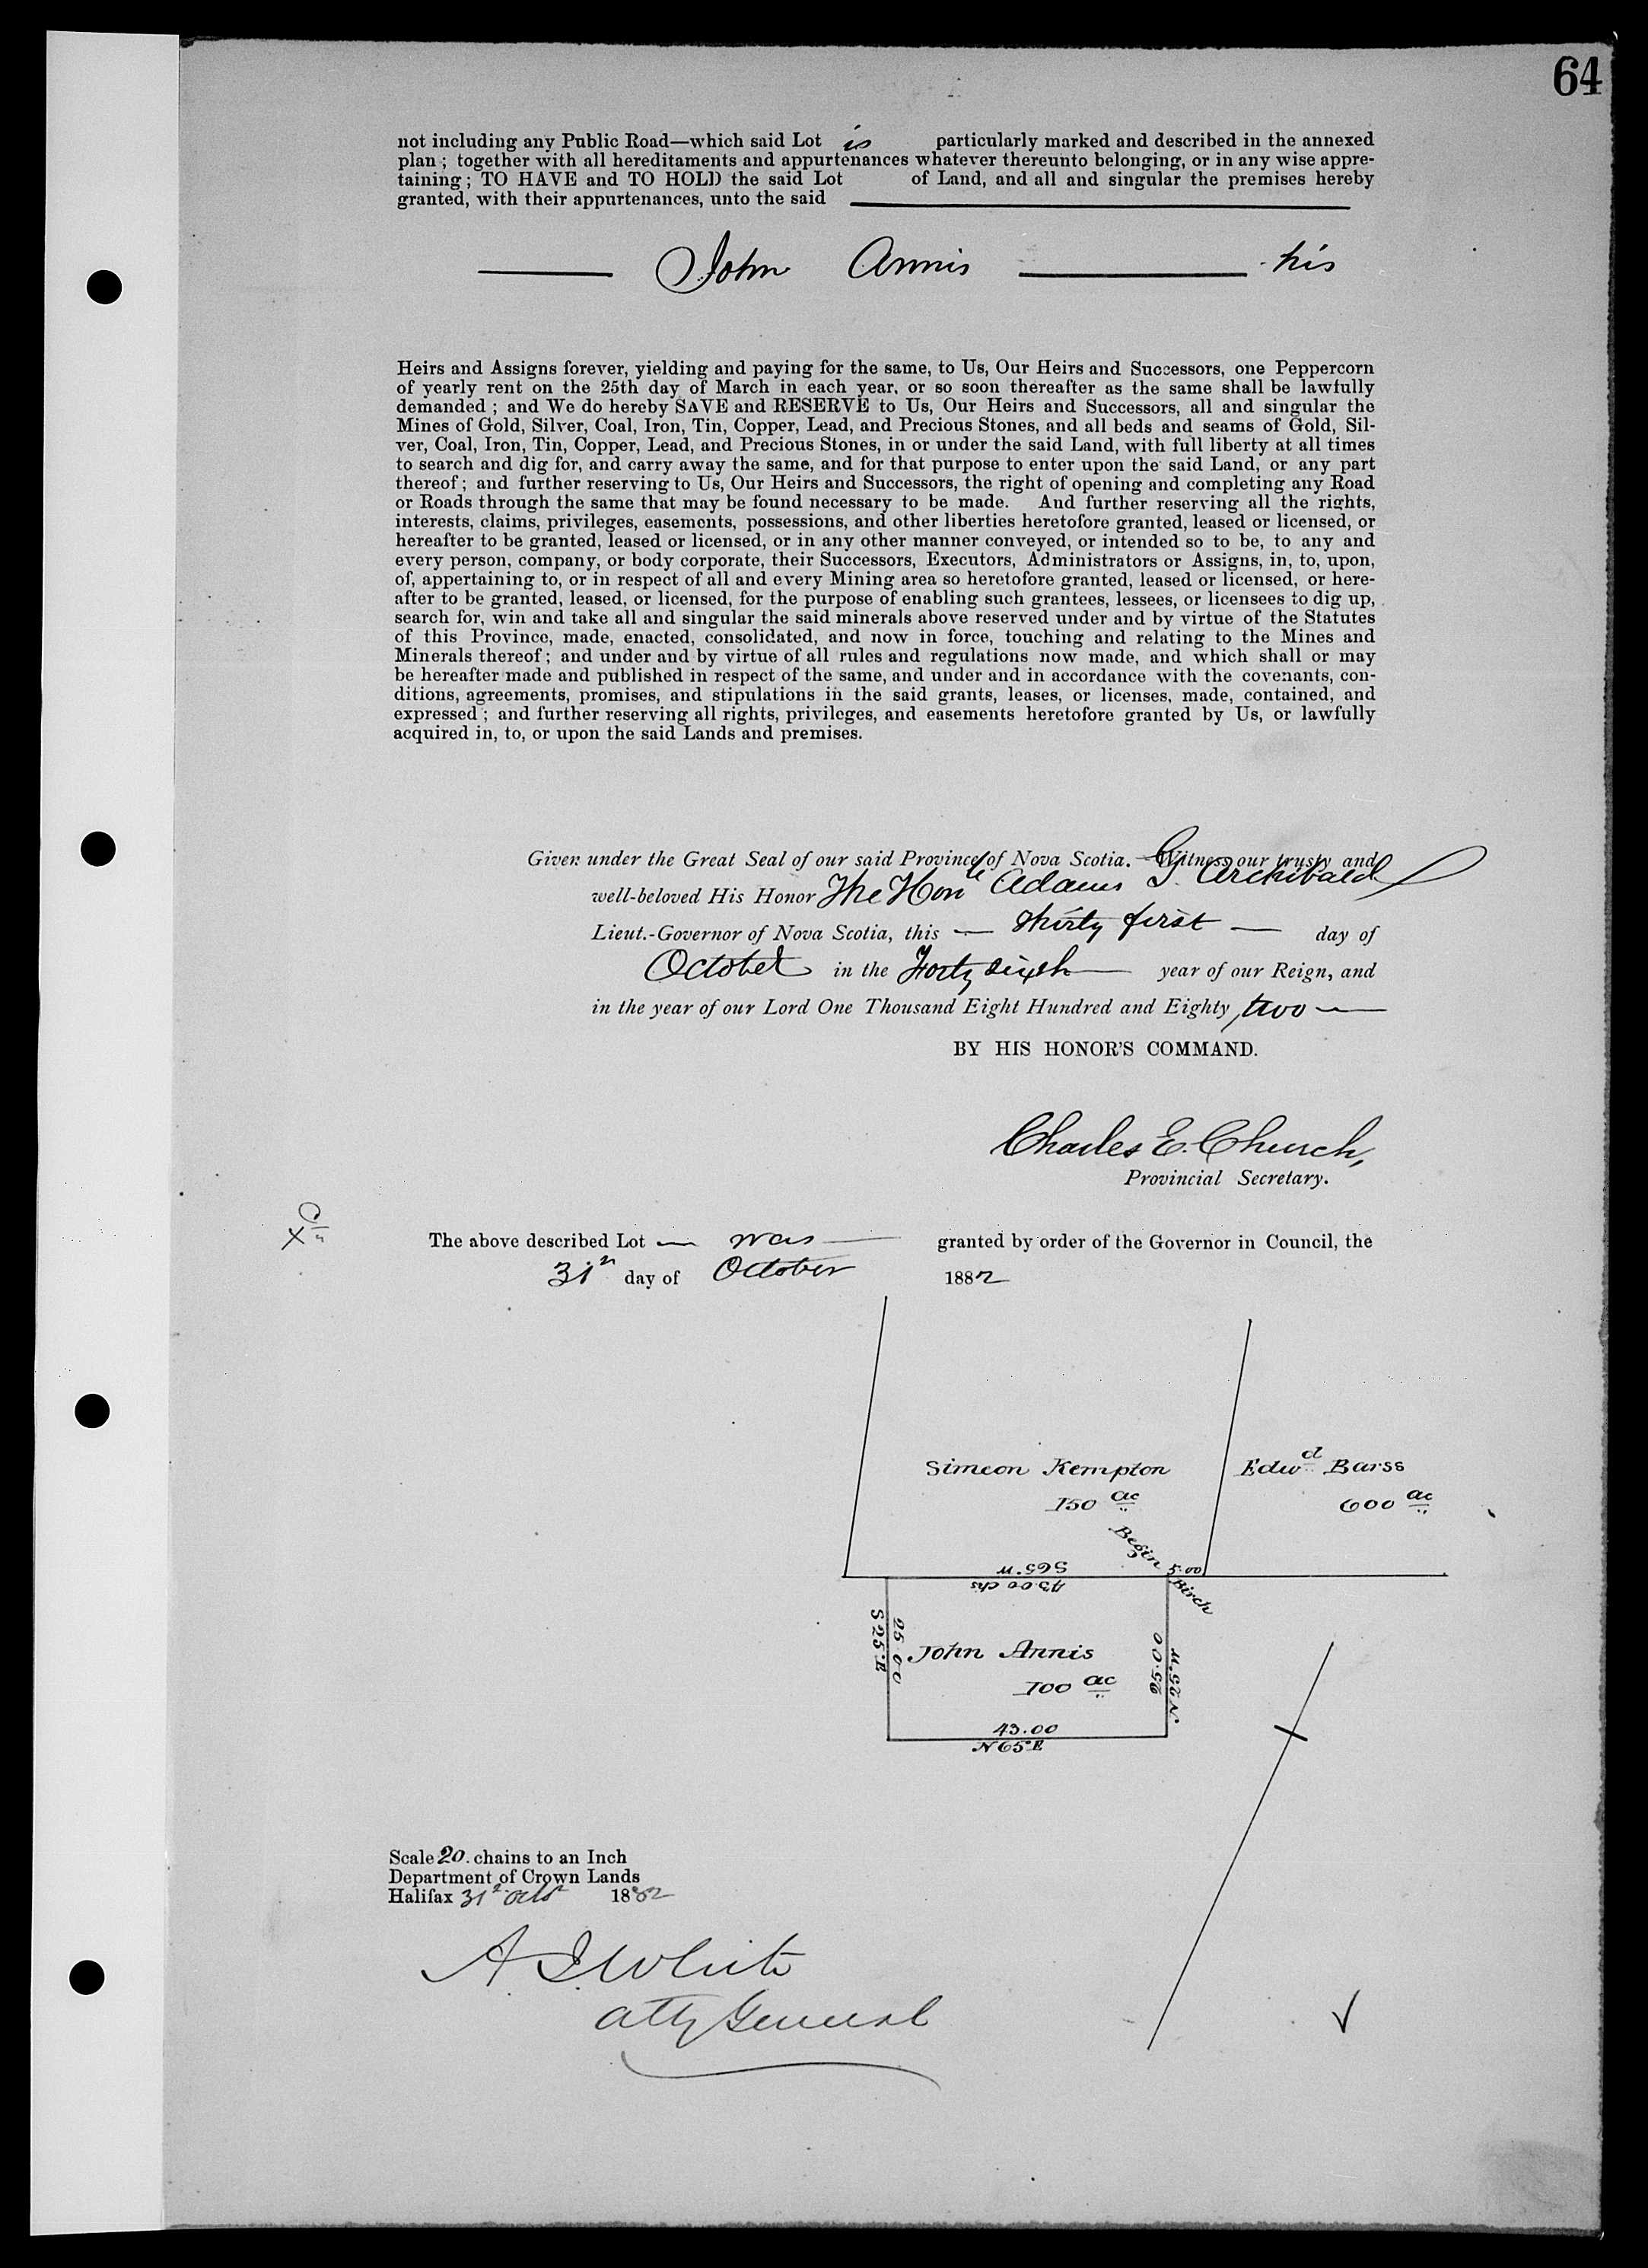 64
not including any Public Road—which said Lot is particularly marked and described in the annexed
plan ; together with all hereditaments and appurtenances whatever thereunto belonging, or in any wise appre-
taining ; TO HAVE and TO HOLD the said Lot of Land, and all and singular the premises hereby
granted, with their appurtenances, unto the said
John Annis his
Heirs and Assigns forever, yielding and paying for the same, to Us, Our Heirs and Successors, one Peppercorn
of yearly rent on the 25th day of March in each year, or so soon thereafter as the same shall be lawfully
demanded ; and We do hereby SAVE and RESERVE to Us, Our Heirs and Successors, all and singular the
Mines of Gold, Silver, Coal, Iron, Tin, Copper, Lead, and Precious Stones, and all beds and seams of Gold, Sil-
ver, Coal, Iron, Tin, Copper, Lead, and Precious Stones, in or under the said Land, with full liberty at all times
to search and dig for, and carry away the same, and for that purpose to enter upon the said Land, or any part
thereof ; and further reserving to Us, Our Heirs and Successors, the right of opening and completing any Road
or Roads through the same that may be found necessary to be made. And further reserving all the rights,
interests, claims, privileges, easements, possessions, and other liberties heretofore granted, leased or licensed, or
hereafter to be granted, leased or licensed, or in any other manner conveyed, or intended so to be, to any and
every person, company, or body corporate, their Successors, Executors, Administrators or Assigns, in, to, upon,
of, appertaining to, or in respect of all and every Mining area so heretofore granted, leased or licensed, or here-
after to be granted, leased, or licensed, for the purpose of enabling such grantees, lessees, or licensees to dig up,
search for, win and take all and singular the said minerals above reserved under and by virtue of the Statutes
of this Province, made, enacted, consolidated, and now in force, touching and relating to the Mines and
Minerals thereof ; and under and by virtue of all rules and regulations now made, and which shall or may
be hereafter made and published in respect of the same, and under and in accordance with the covenants, con-
ditions, agreements, promises, and stipulations in the said grants, leases, or licenses, made, contained, and
expressed ; and further reserving all rights, privileges, and easements heretofore granted by Us, or lawfully
acquired in, to, or upon the said Lands and premises.
Given under the Great Seal of our said Province of Nova Scotia. Witness our trusty and
well-beloved His Honor The Honle Adams G. Archibald
Lieut.-Governor of Nova Scotia, this — thirty first — day of
October in the Forty sixth year of our Reign, and
in the year of our Lord One Thousand Eight Hundred and Eighty two
BY HIS HONOR'S COMMAND.
Charles E. Church,
Provincial Secretary.
The above described Lot — was — granted by order of the Governor in Council, the
31 day of October 1882
Simeon Kempton
150 ac
Edwd Barss
600 ac
Begin
5.00
Birch
S 65° W
43.00 chs
S 25° E
25.00
John Annis
100 ac
25.00
N 25° W
43.00
N 65° E
Scale 20. chains to an Inch
Department of Crown Lands
Halifax 31 Octr 1882
A. J. White
Atty General